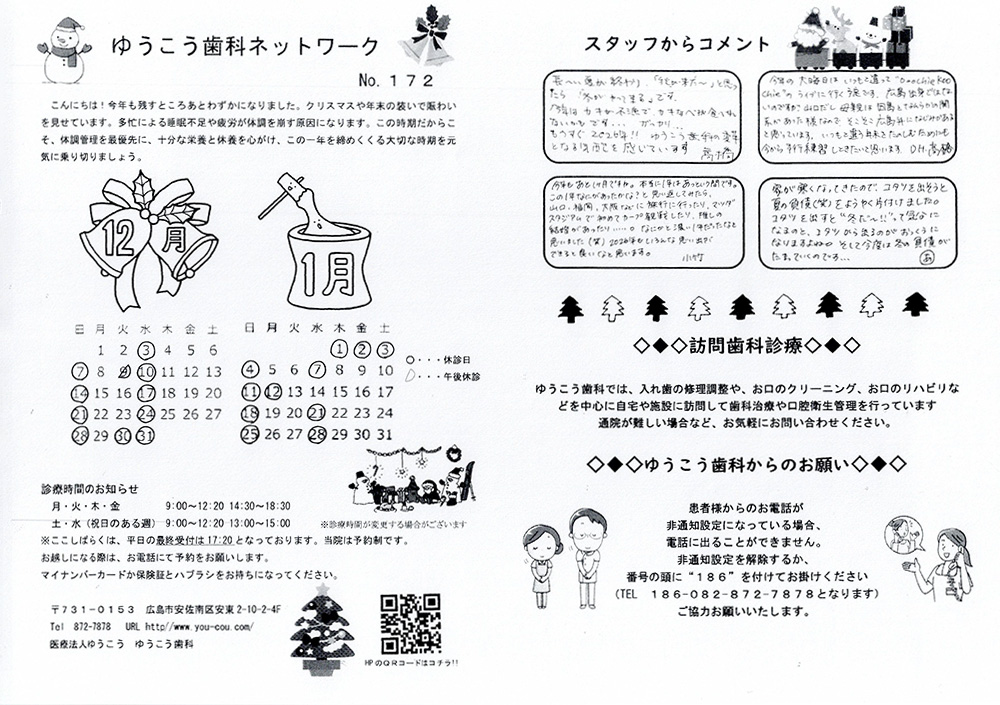 ゆうこう歯科ネットワーク
No. 172
こんにちは！今年も残すところあとわずかになりました。クリスマスや年末の装いで賑わい
を見せています。多忙による睡眠不足や疲労が体調を崩す原因になります。この時期だからこ
そ、体調管理を最優先に、十分な栄養と休養を心がけ、この一年を締めくくる大切な時期を元
気に乗り切りましょう。
12月
1月
日 月 火 水 木 金 土
1 2 3 4 5 6
7 8 9 10 11 12 13
14 15 16 17 18 19 20
21 22 23 24 25 26 27
28 29 30 31
日 月 火 水 木 金 土
1 2 3
4 5 6 7 8 9 10
11 12 13 14 15 16 17
18 19 20 21 22 23 24
25 26 27 28 29 30 31
○・・・休診日
・・・午後休診
診療時間のお知らせ
月・火・木・金 9:00～12:20 14:30～18:30
土・水（祝日のある週） 9:00～12:20 13:00～15:00 ※診療時間が変更する場合がございます
※ここしばらくは、平日の最終受付は17:20となっております。当院は予約制です。
お越しになる際は、お電話にて予約をお願いします。
マイナンバーカードか保険証とハブラシをお持ちになってください。
〒731-0153 広島市安佐南区安東2-10-2-4F
Tel 872-7878 URL http//www.you-cou.com/
医療法人ゆうこう ゆうこう歯科
HPのQRコードはコチラ!!
スタッフからコメント
長～い夏が終わり、「秋が来た～」と思っ
たら「冬がやってきる」です。
今年はカキが不漁で、カキなべが食べれ
ないかもです・・・ がっかり
もうすぐ2026年!! ゆうこう歯科の変革
となる年を感じています 高橋
今年の大晦日はいつもと違って
のライブに行く予定です。広島出身ではな
いのですが 山口だし 母親は因島と
今年もあと1ヶ月ですね。本当に1年はあっという間です。
この1年なにがあったかな？と思い返してみたら、
山口・福岡・大阪などに旅行に行ったり、マツダ
スタジアムで初めてカープ観戦したり、推しの
結婚があったり……。なにかと濃い1年だったなと
思いました(笑) 2026年もいろんな思い出が
できると良いなと思います。 小竹
家が寒くなってきたので、コタツを出そうと
夏の負債(笑)をようやく片付けました。
コタツを出すと“冬だ～!!”って気分に
なるのと、コタツから出るのがおっくうに
なりますよね。そして今度は冬の負債が
たまっていくのです… あ
◇◆◇訪問歯科診療◇◆◇
ゆうこう歯科では、入れ歯の修理調整や、お口のクリーニング、お口のリハビリな
どを中心に自宅や施設に訪問して歯科治療や口腔衛生管理を行っています
通院が難しい場合など、お気軽にお問い合わせください。
◇◆◇ゆうこう歯科からのお願い◇◆◇
患者様からのお電話が
非通知設定になっている場合、
電話に出ることができません。
非通知設定を解除するか、
番号の頭に“186”を付けてお掛けください
(TEL 186-082-872-7878となります)
ご協力お願いいたします。